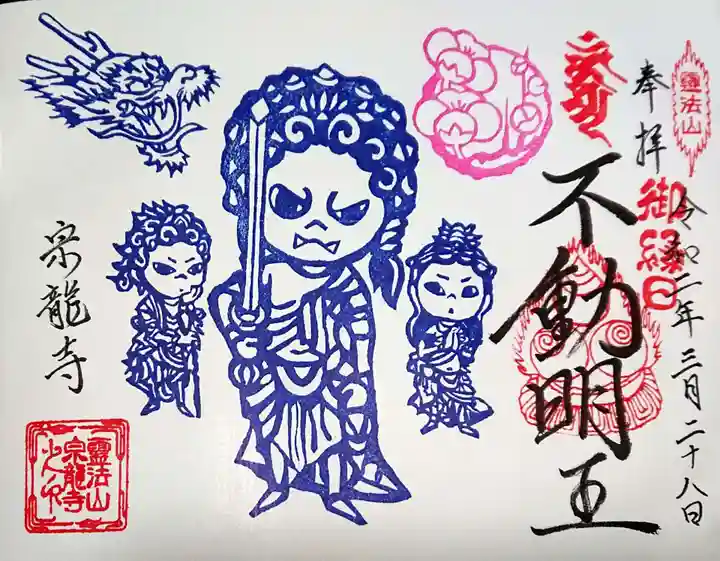 霊法山
奉拝
令和二年三月二十八日
御縁日
不動明王
宗龍寺
霊法山
宗龍寺